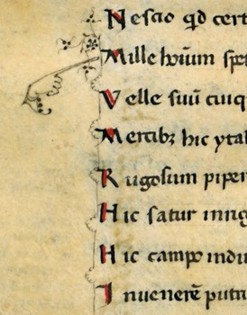 Nescio qd cert
Mille hoīum spē
Velle suū cuiq
Mercibꝫ hic ytal
Rugosum piper
Hic satur irrig
Hic campo indu
Inuenerē putri